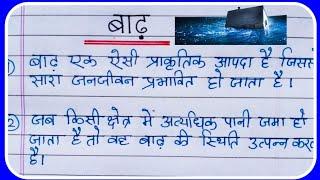 बाढ़
1) बाढ़ एक ऐसी प्राकृतिक आपदा है जिससे
सारा जनजीवन प्रभावित हो जाता है।
2) जब किसी क्षेत्र में अत्यधिक पानी जमा हो
जाता है तो वह बाढ़ की स्थिति उत्पन्न कर
है।